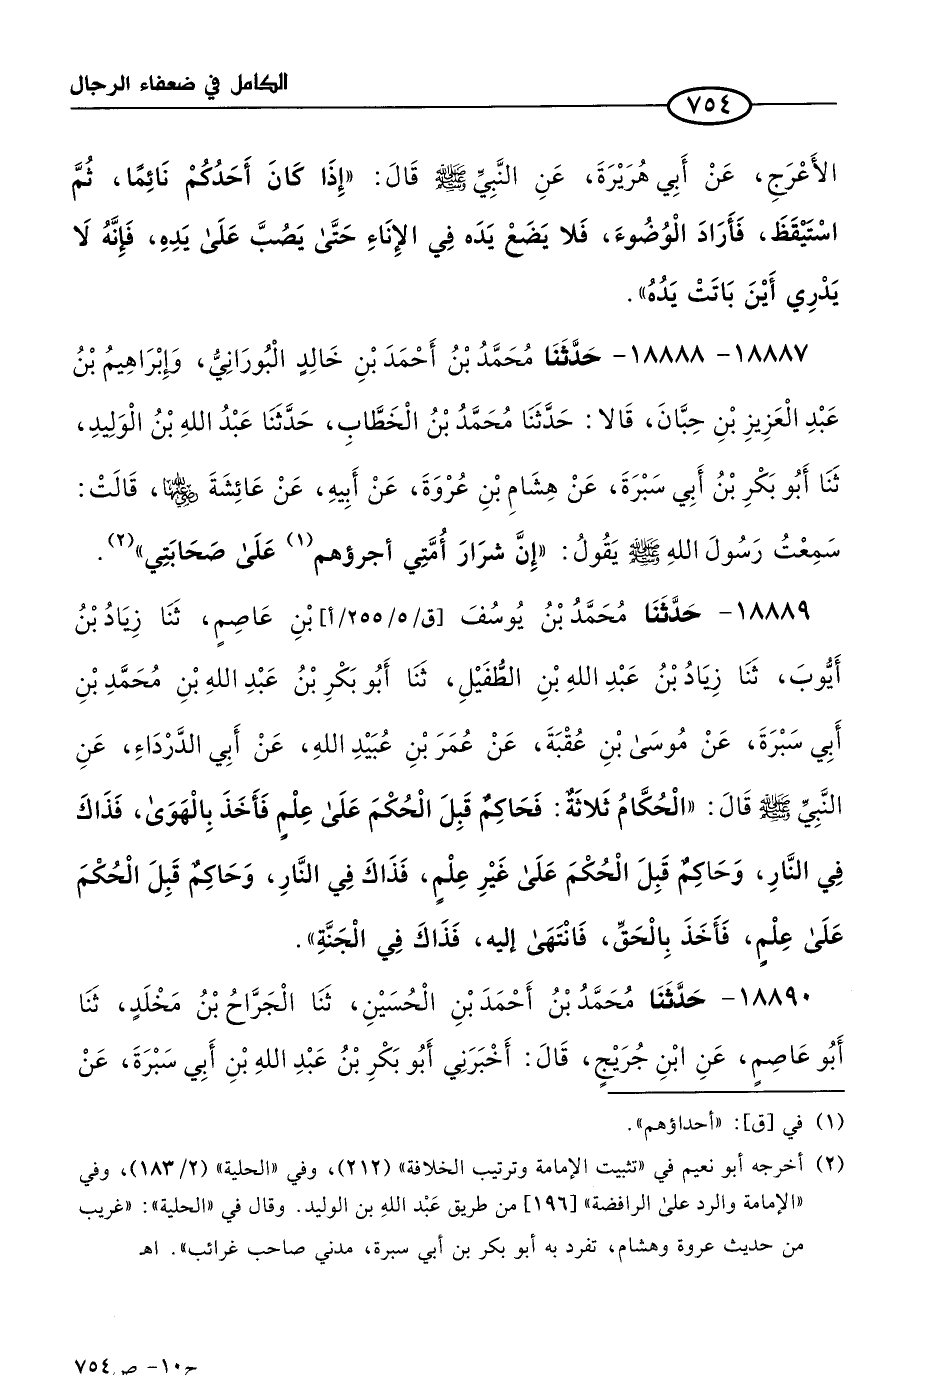 الكامل في ضعفاء الرجال
٧٥٤
الأَعْرَجِ، عَنْ أَبِي هُرَيْرَةَ، عَنِ النَّبِيِّ ﷺ قَالَ: «إِذَا كَانَ أَحَدُكُمْ نَائِمًا، ثُمَّ
اسْتَيْقَظَ، فَأَرَادَ الْوُضُوءَ، فَلا يَضَعْ يَدَه فِي الإِنَاءِ حَتَّىٰ يَصُبَّ عَلَىٰ يَدِهِ، فَإِنَّهُ لَا
يَدْرِي أَيْنَ بَاتَتْ يَدُهُ».
١٨٨٨٧- ١٨٨٨٨- حَدَّثَنَا مُحَمَّدُ بْنُ أَحْمَدَ بْنِ خَالِدٍ الْبُورَانِيُّ، وَإِبْرَاهِيمُ بْنُ
عَبْدِ الْعَزِيزِ بْنِ حِبَّانَ، قَالا: حَدَّثَنَا مُحَمَّدُ بْنُ الْخَطَّابِ، حَدَّثَنَا عَبْدُ اللهِ بْنُ الْوَلِيدِ،
ثَنَا أَبُو بَكْرِ بْنُ أَبِي سَبْرَةَ، عَنْ هِشَامِ بْنِ عُرْوَةَ، عَنْ أَبِيهِ، عَنْ عَائِشَةَ رضي الله عنها، قَالَتْ:
سَمِعْتُ رَسُولَ اللهِ ﷺ يَقُولُ: «إِنَّ شرَارَ أُمَّتِي أجرؤهم(١) عَلَىٰ صَحَابَتِي»(٢).
١٨٨٨٩- حَدَّثَنَا مُحَمَّدُ بْنُ يُوسُفَ [ق/٢٥٥/٥/أ] بْنِ عَاصِمٍ، ثَنَا زِيَادُ بْنُ
أَيُّوبَ، ثَنَا زِيَادُ بْنُ عَبْدِ اللهِ بْنِ الطُّفَيْلِ، ثَنَا أَبُو بَكْرِ بْنُ عَبْدِ اللهِ بْنِ مُحَمَّدِ بْنِ
أَبِي سَبْرَةَ، عَنْ مُوسَىٰ بْنِ عُقْبَةَ، عَنْ عُمَرَ بْنِ عُبَيْدِ اللهِ، عَنْ أَبِي الدَّرْدَاءِ، عَنِ
النَّبِيِّ ﷺ قَالَ: «الْحُكَّامُ ثَلاثَةٌ: فَحَاكِمٌ قَبِلَ الْحُكْمَ عَلَىٰ عِلْمٍ فَأَخَذَ بِالْهَوَىٰ، فَذَاكَ
فِي النَّارِ، وَحَاكِمٌ قَبِلَ الْحُكْمَ عَلَىٰ غَيْرِ عِلْمٍ، فَذَاكَ فِي النَّارِ، وَحَاكِمٌ قَبِلَ الْحُكْمَ
عَلَىٰ عِلْمٍ، فَأَخَذَ بِالْحَقِّ، فَانْتَهَىٰ إليه، فَذَاكَ فِي الْجَنَّةِ».
١٨٨٩٠- حَدَّثَنَا مُحَمَّدُ بْنُ أَحْمَدَ بْنِ الْحُسَيْنِ، ثَنَا الْجَرَّاحُ بْنُ مَخْلَدٍ، ثَنَا
أَبُو عَاصِمٍ، عَنِ ابْنِ جُرَيْجٍ، قَالَ: أَخْبَرَنِي أَبُو بَكْرِ بْنُ عَبْدِ اللهِ بْنِ أَبِي سَبْرَةَ، عَنْ
(١) في [ق]: «أحداؤهم».
(٢) أخرجه أبو نعيم في «تثبيت الإمامة وترتيب الخلافة» (٢١٢)، وفي «الحلية» (١٨٣/٢)، وفي
«الإمامة والرد علىٰ الرافضة» [١٩٦] من طريق عَبْد اللهِ بن الوليد. وقال في «الحلية»: «غريب
من حديث عروة وهشام، تفرد به أبو بكر بن أبي سبرة، مدني صاحب غرائب». اهـ
ج١٠- ص٧٥٤